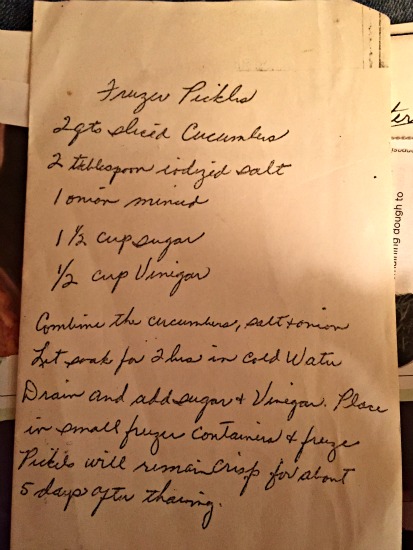 Freezer Pickles
2 qts sliced Cucumbers
2 tablespoon iodized salt
1 onion minced
1 1/2 cup sugar
1/2 cup Vinegar
Combine the cucumbers, salt + onion
Let soak for 2 hrs in cold Water
Drain and add sugar + Vinegar. Place
in small freezer containers + freeze
Pickles will remain Crisp for about
5 days after thawing.
dough to